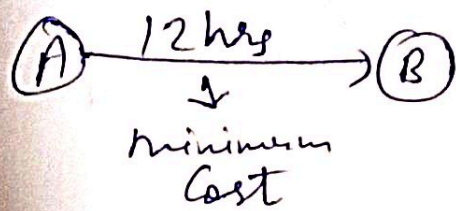 A 12 hrs B
minimum
Cost